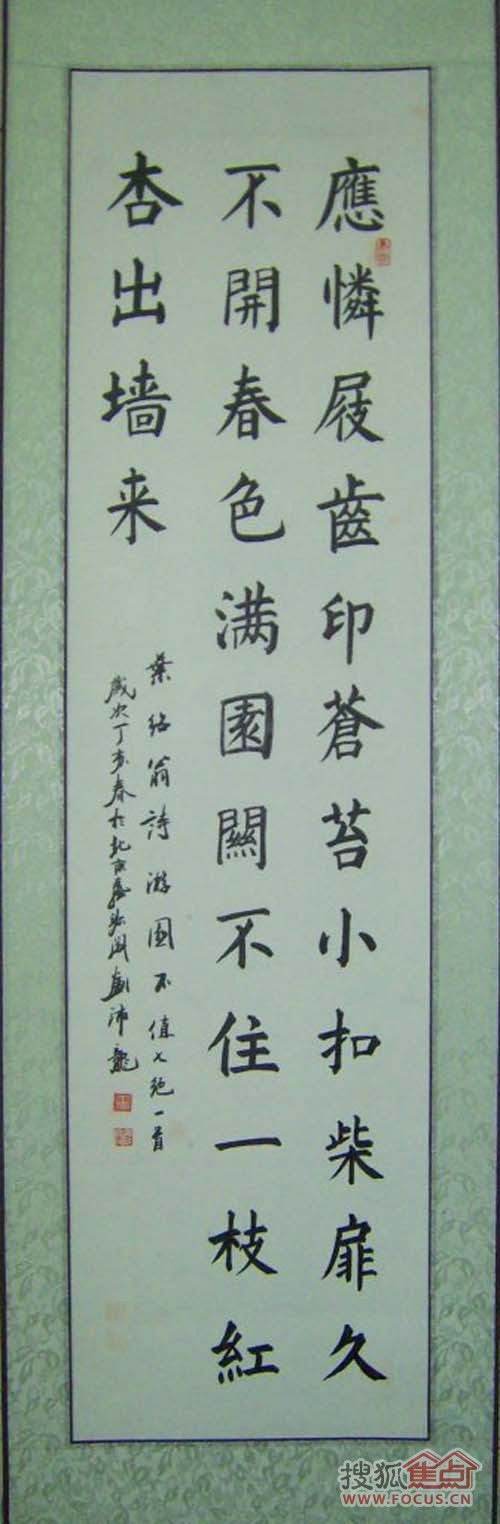 應憐屐齒印蒼苔小扣柴扉久
不開春色满園關不住一枝紅
杏出墙来
葉绍翁詩游園不值七绝一首
歲次丁亥春於北京
劉沛龍
搜狐焦点
WWW.FOCUS.CN